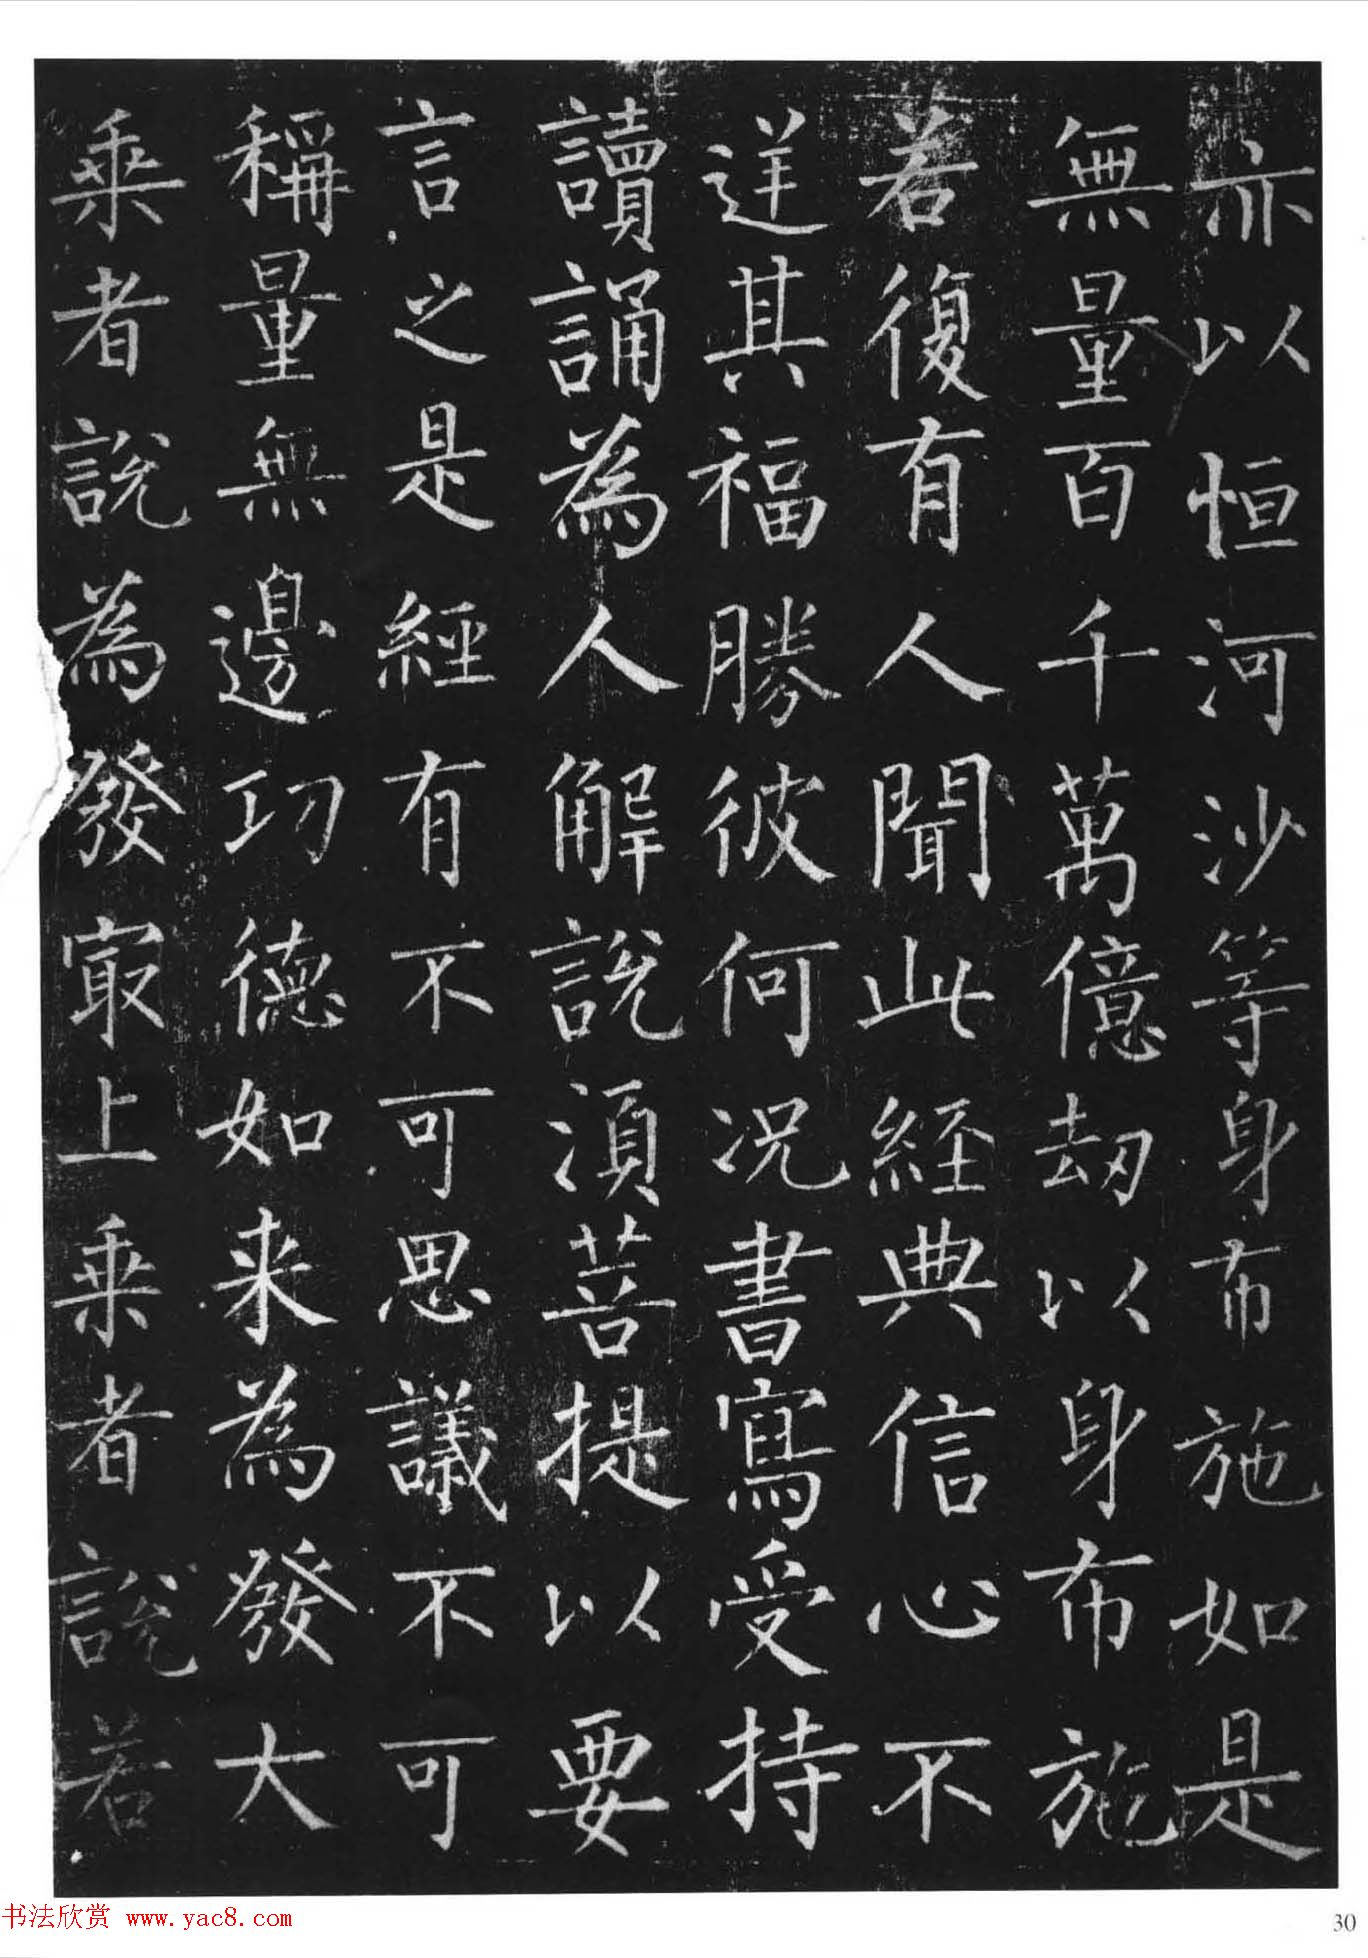 亦以恒河沙等身布施如是
無量百千萬億劫以身布施
若復有人聞此經典信心不
逆其福勝彼何況書寫受持
讀誦為人解說須菩提以要
言之是經有不可思議不可
稱量無邊功德如来為發大
乘者說為發寂上乘者說若
书法欣赏 www.yac8.com
30